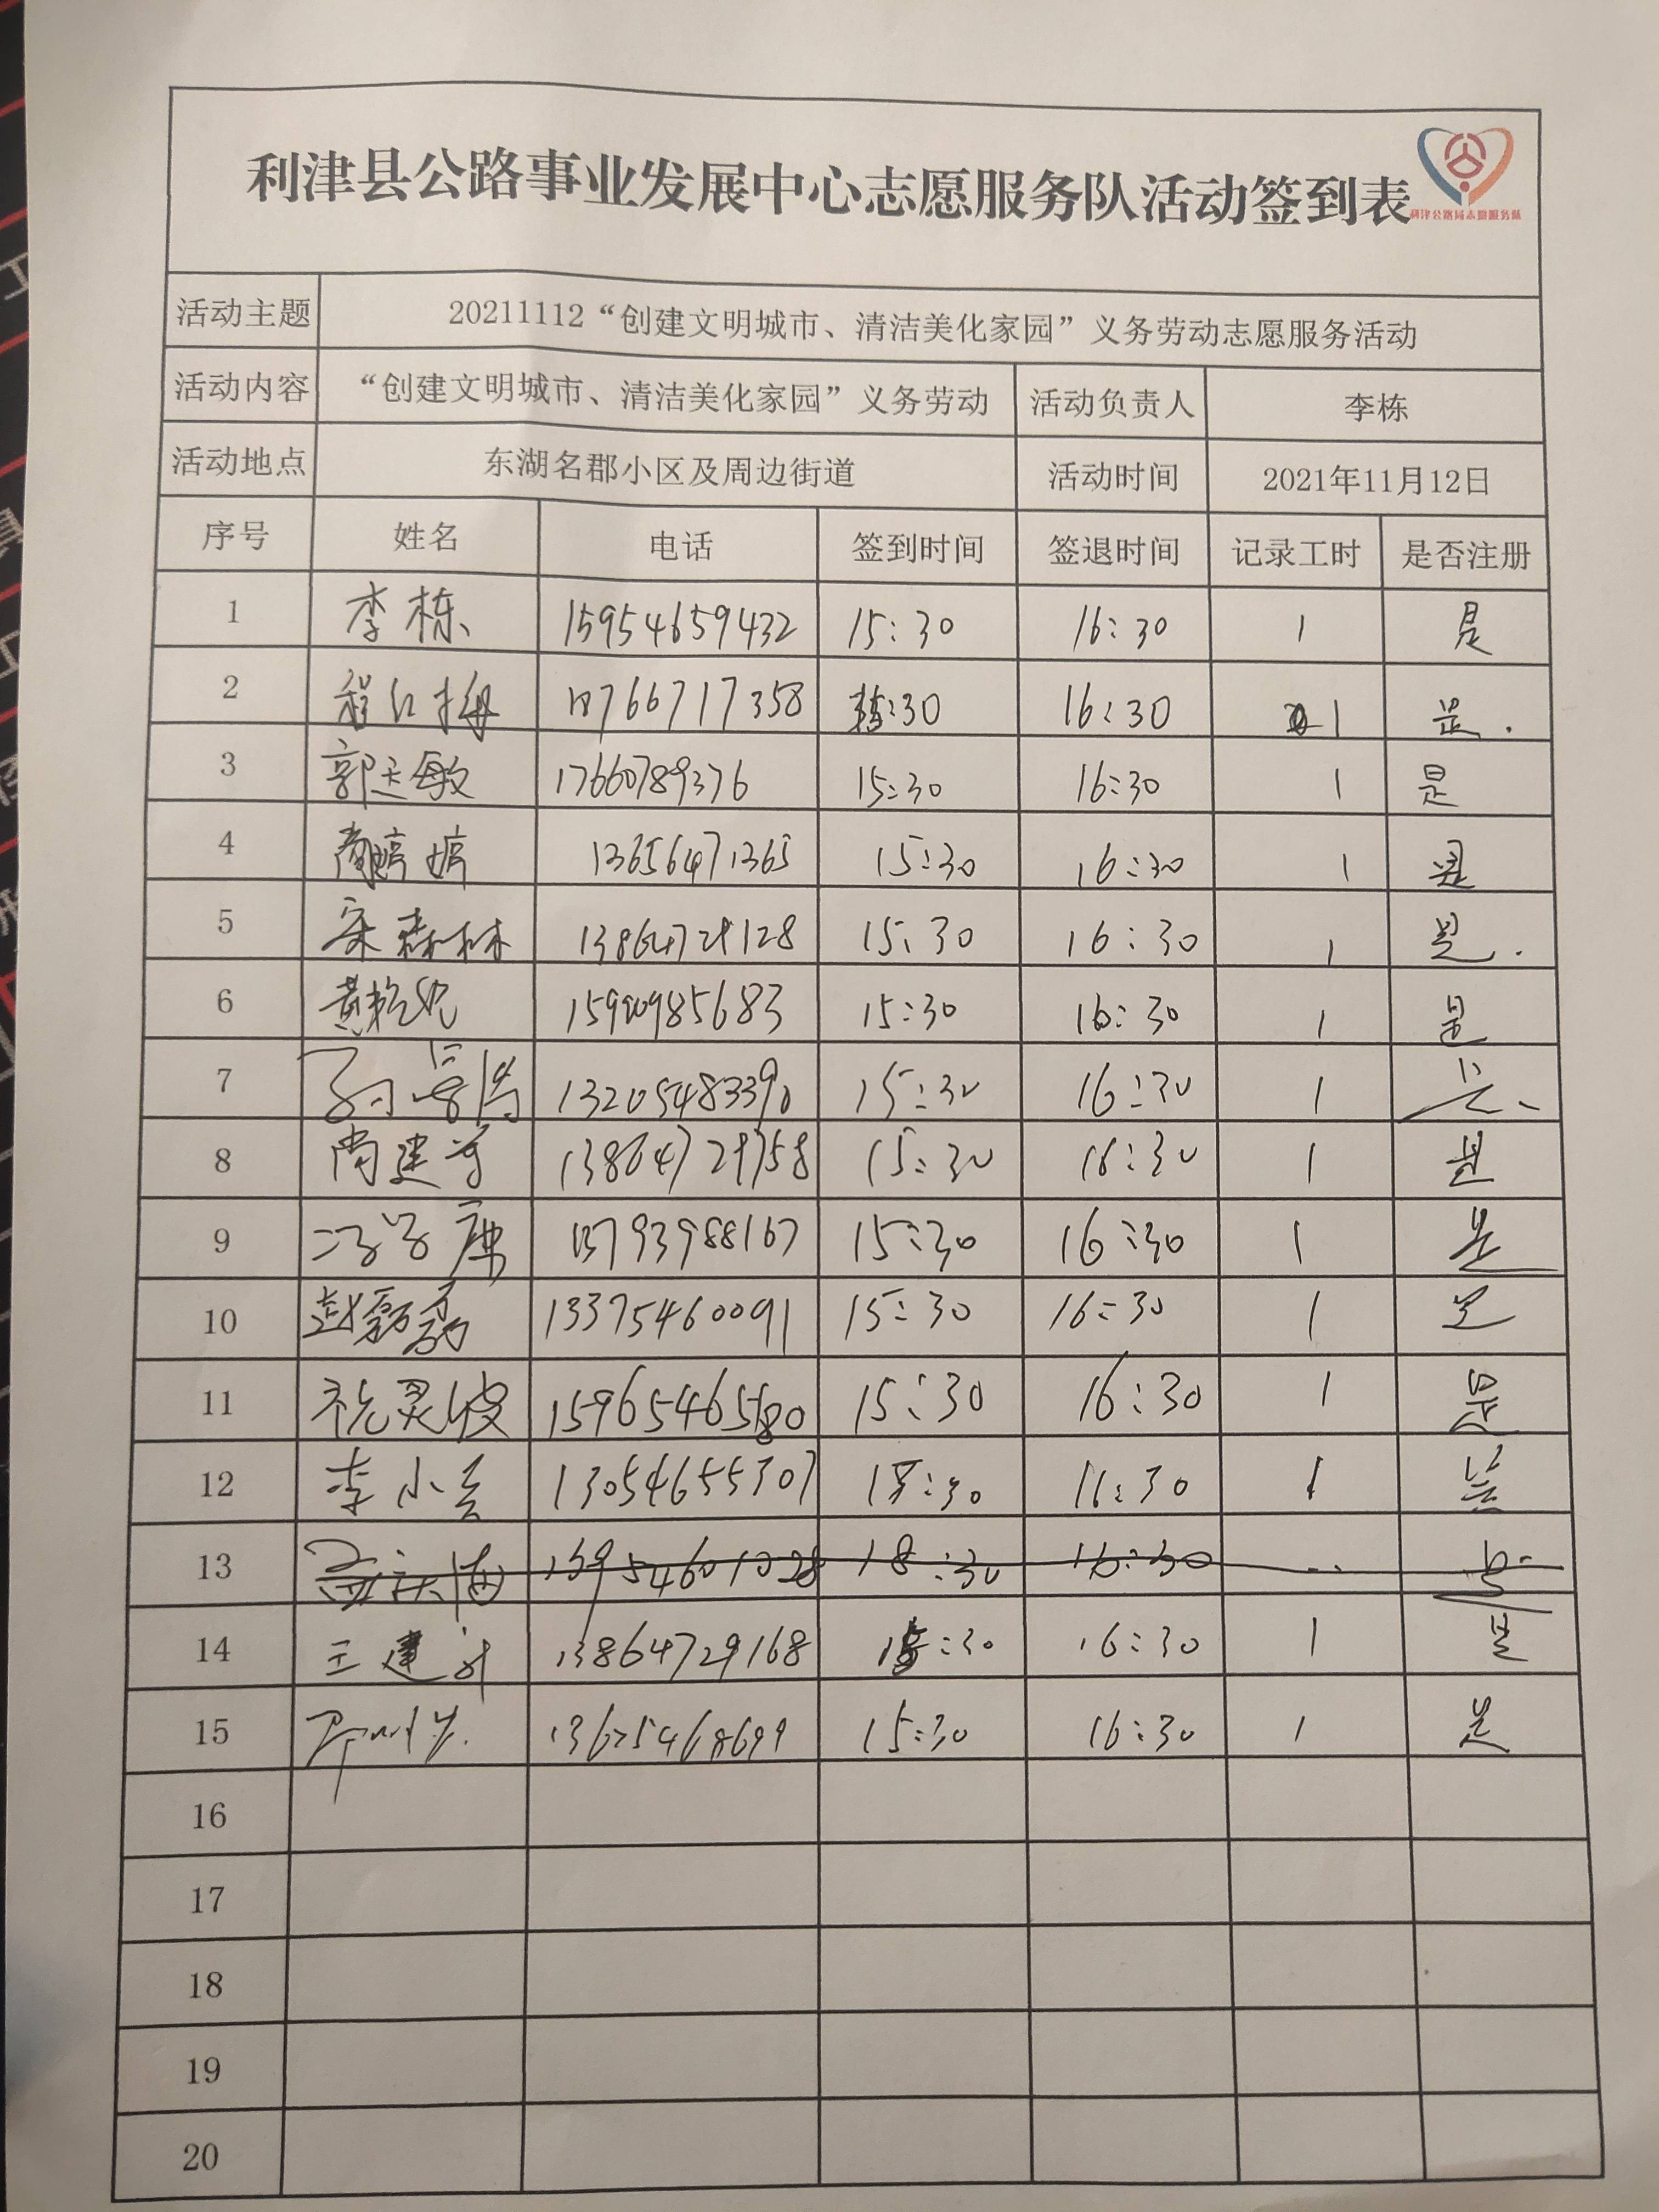 利津县公路事业发展中心志愿服务队活动签到表
利津公路局志愿服务队
活动主题 20211112“创建文明城市、清洁美化家园”义务劳动志愿服务活动
活动内容 “创建文明城市、清洁美化家园”义务劳动 活动负责人 李栋
活动地点 东湖名郡小区及周边街道 活动时间 2021年11月12日
序号 姓名 电话 签到时间 签退时间 记录工时 是否注册
1 李栋 15954659432 15:30 16:30 1 是
2 程红梅 18766717358 15:30 16:30 1 是.
3 17660789376 15:30 16:30 1 是
4 尚婷婷 13656471365 15:30 16:30 1 是
5 宋森林 13864729128 15:30 16:30 1 是.
6 15:30 16:30 1 是
7 13205483390 15:30 16:30 1 是
8 13864729758 15:30 16:30 1 是
9 13793988167 15:30 16:30 1 是
10 赵磊磊 13375460091 15:30 16:30 1 是
11 祝灵波 15:30 16:30 1 是
12 13054655307 16:30 1 是
13 16:30
14 13864729168 15:30 16:30 1 是
15 15:30 16:30 1 是
16
17
18
19
20